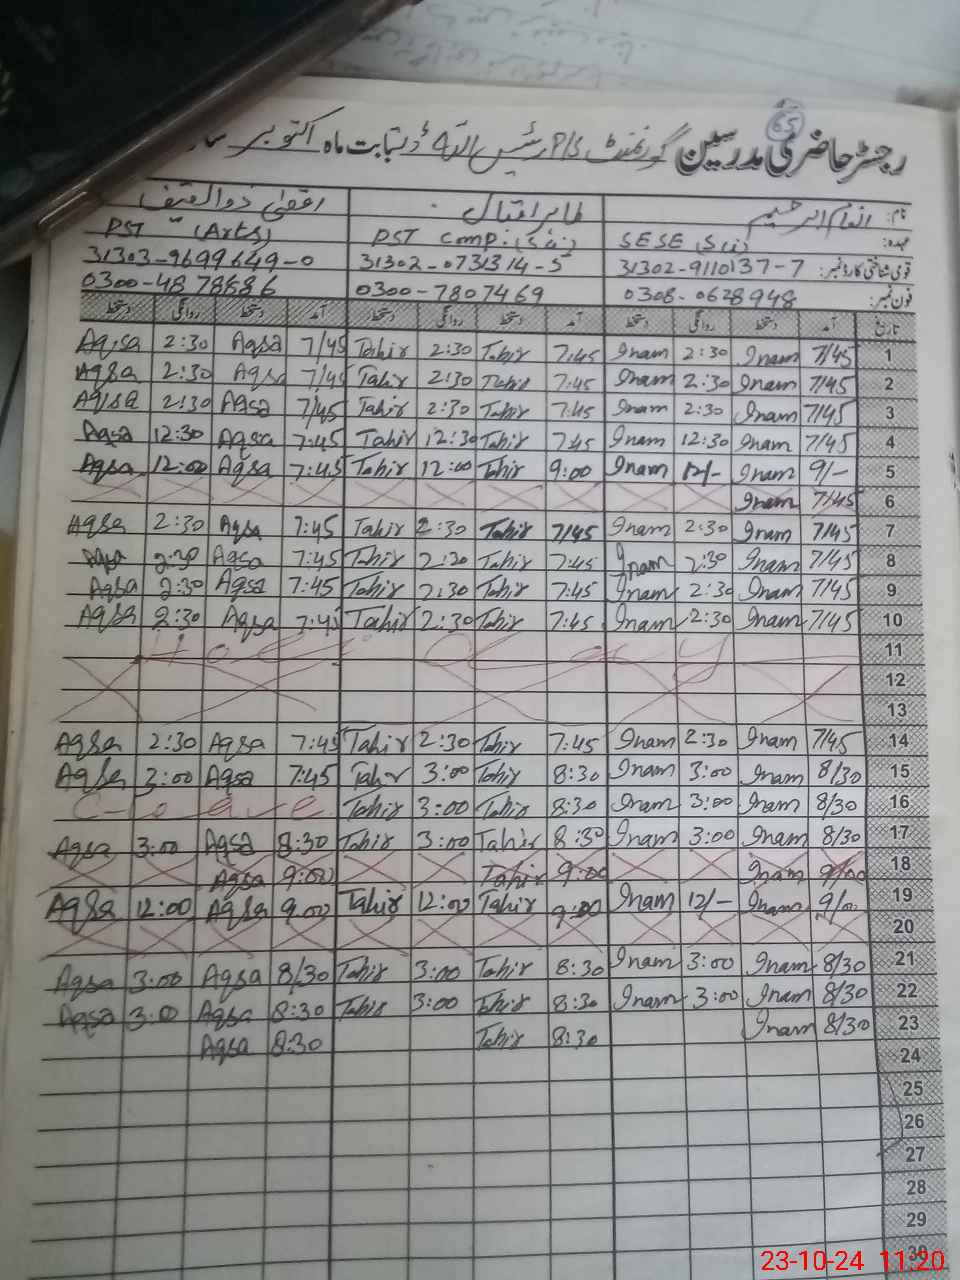 65
رجسٹر حاضری مدرسین گورنمنٹ بابت ماہ اکتوبر
نام: انعام الرحیم طاہر اقبال اقصیٰ ذوالفیف
عہدہ: SESE PST Comp. PST (Arts)
قومی شناختی کارڈ نمبر: 31302-9110137-7 31302-0731314-5 31303-9699649-0
فون نمبر: 0308-0628948 0300-7807469 0300-4878686
تاریخ آمد دستخط روانگی دستخط آمد دستخط روانگی دستخط آمد دستخط روانگی دستخط
1 7/45 Inam 2:30 Inam 7:45 Tahir 2:30 Tahir 7/45 Aqsa 2:30 Aqsa
2 7/45 Inam 2:30 Inam 7:45 Tahir 2:30 Tahir 7/45 Aqsa 2:30 Aqsa
3 7/45 Inam 2:30 Inam 7:45 Tahir 2:30 Tahir 7/45 Aqsa 2:30 Aqsa
4 7/45 Inam 12:30 Inam 7:45 Tahir 12:30 Tahir 7:45 Aqsa 12:30 Aqsa
5 9/- Inam 12/- Inam 9:00 Tahir 12:00 Tahir 7:45 Aqsa 12:00 Aqsa
6 7/45 Inam
7 7/45 Inam 2:30 Inam 7/45 Tahir 2:30 Tahir 7:45 Aqsa 2:30 Aqsa
8 7/45 Inam 2:30 Inam 7:45 Tahir 2:30 Tahir 7:45 Aqsa 2:30 Aqsa
9 7/45 Inam 2:30 Inam 7:45 Tahir 2:30 Tahir 7:45 Aqsa 2:30 Aqsa
10 7/45 Inam 2:30 Inam 7:45 Tahir 2:30 Tahir 7:45 Aqsa 2:30 Aqsa
11 Holiday
12
13
14 7/45 Inam 2:30 Inam 7:45 Tahir 2:30 Tahir 7:45 Aqsa 2:30 Aqsa
15 8/30 Inam 3:00 Inam 8:30 Tahir 3:00 Tahir 7:45 Aqsa 3:00 Aqsa
16 8/30 Inam 3:00 Inam 8:30 Tahir 3:00 Tahir C-leave
17 8/30 Inam 3:00 Inam 8:30 Tahir 3:00 Tahir 8:30 Aqsa 3:00 Aqsa
18 9/00 Inam 9:00 Tahir 9:00 Aqsa
19 9/00 Inam 12/- Inam 9:00 Tahir 12:00 Tahir 9:00 Aqsa 12:00 Aqsa
20
21 8/30 Inam 3:00 Inam 8:30 Tahir 3:00 Tahir 8/30 Aqsa 3:00 Aqsa
22 8/30 Inam 3:00 Inam 8:30 Tahir 3:00 Tahir 8:30 Aqsa 3:00 Aqsa
23 8/30 Inam 8:30 Tahir 8:30 Aqsa
24
25
26
27
28
29
30
23-10-24 11:20